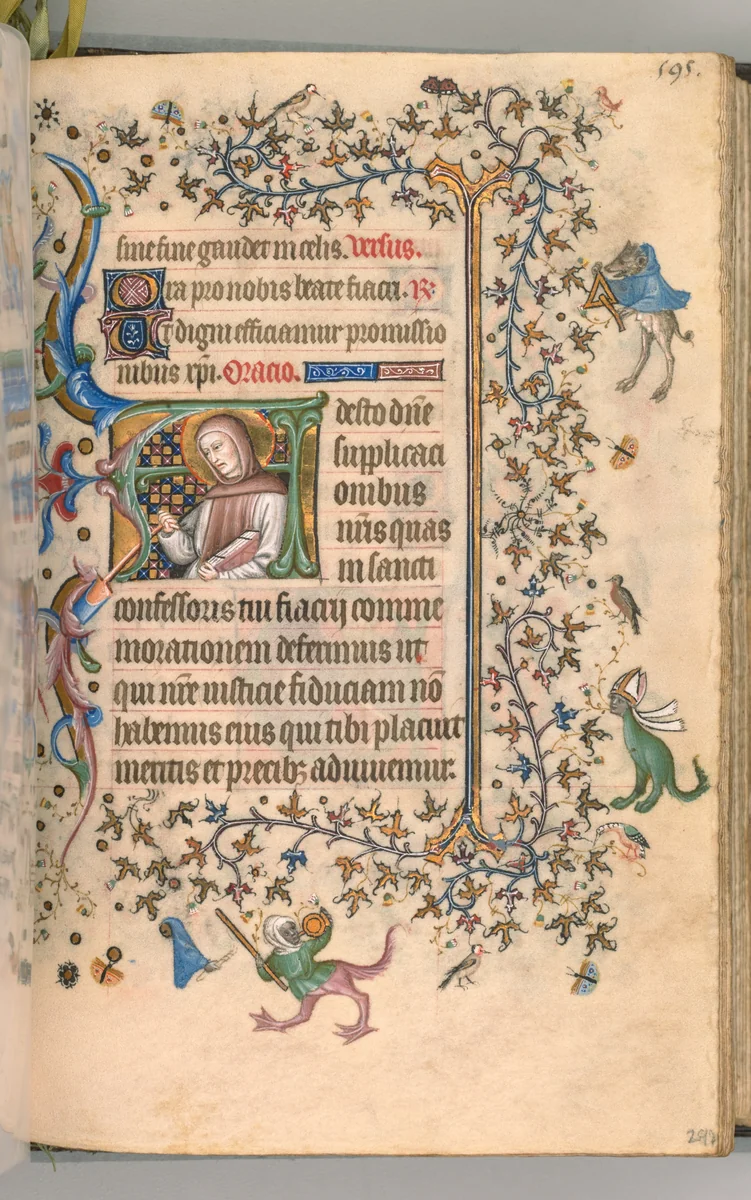 595.
sine fine gaudet in celis. Versus.
Ora pro nobis beate fiacri. R:
Ut digni efficiamur promissio
nibus xp̄i. Oracio.
Adesto dn̄e
supplicaci
onibus
nr̄is quas
in sancti
confessoris tui fiacrij comme
morationem deferimus ut
qui nr̄e iusticie fiduciam nō
habemus eius qui tibi placuit
meritis et precibꝫ adiuuemur.